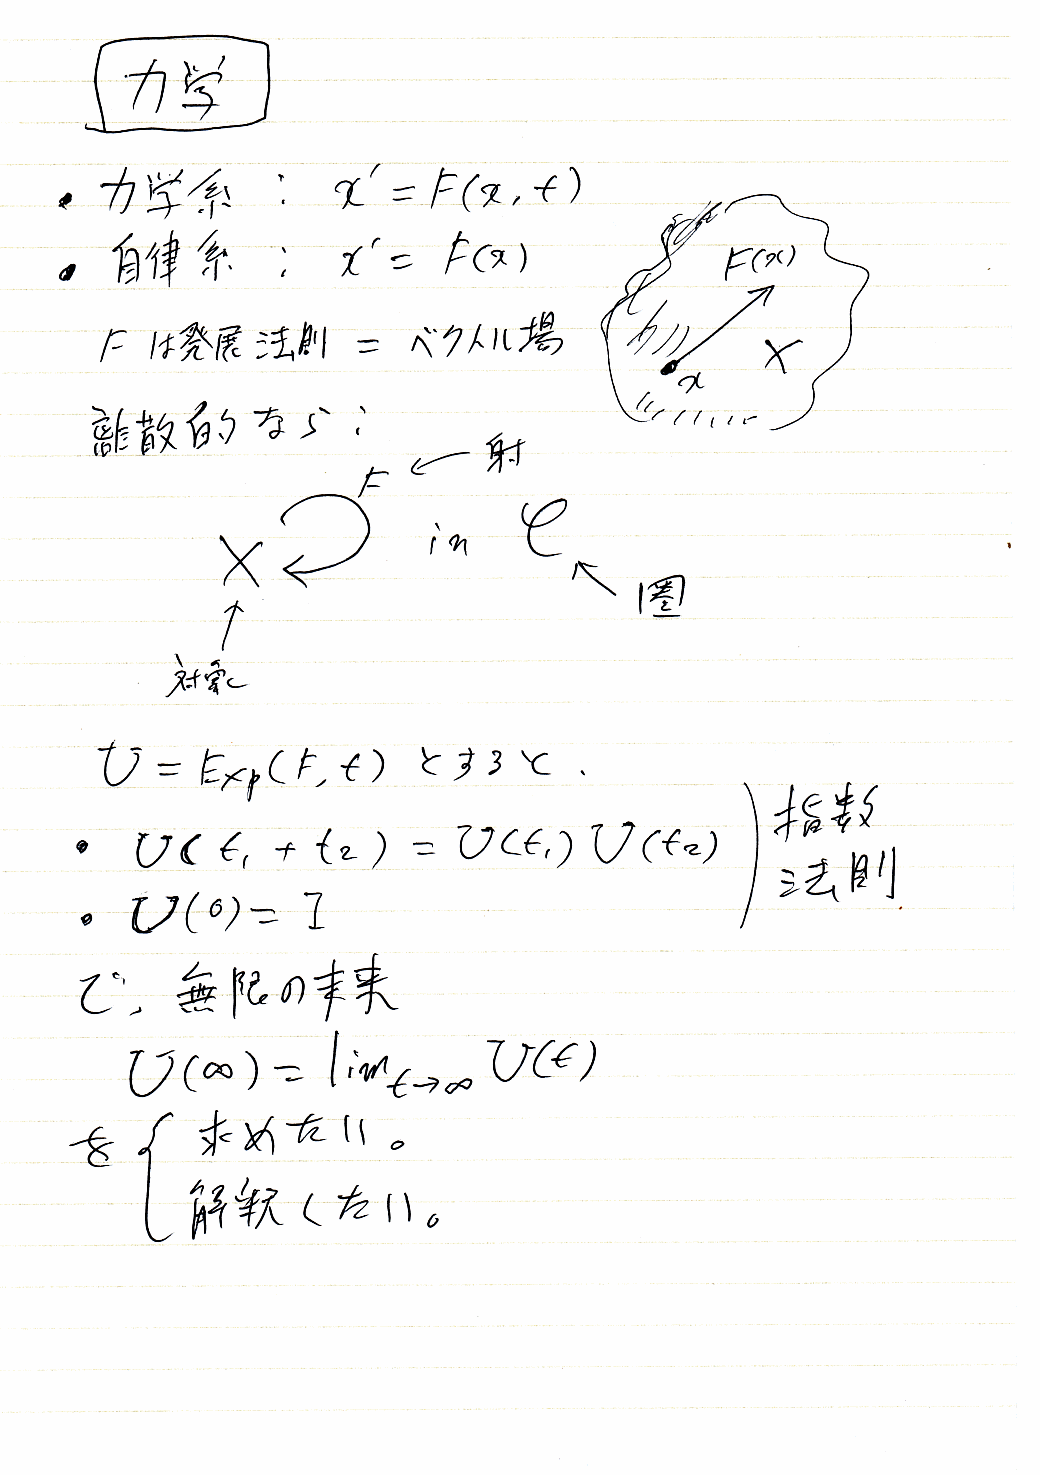 力学
・力学系 : x' = F(x, t)
・自律系 : x' = F(x)
Fは発展法則 = ベクトル場
F(x)
x
X
離散的なら:
F ← 射
X in C
圏
対象
U = Exp(F, t) とすると、
・ U(t₁ + t₂) = U(t₁) U(t₂)
・ U(0) = I
指数
法則
で、無限の未来
U(∞) = lim t→∞ U(t)
を { 求めたい。
解釈したい。